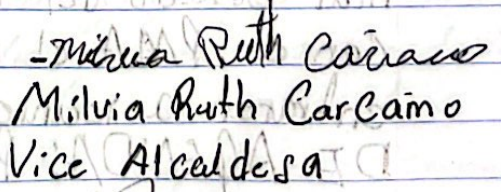 - Milvia Ruth Carcamo
Milvia Ruth Carcamo
Vice Alcaldesa